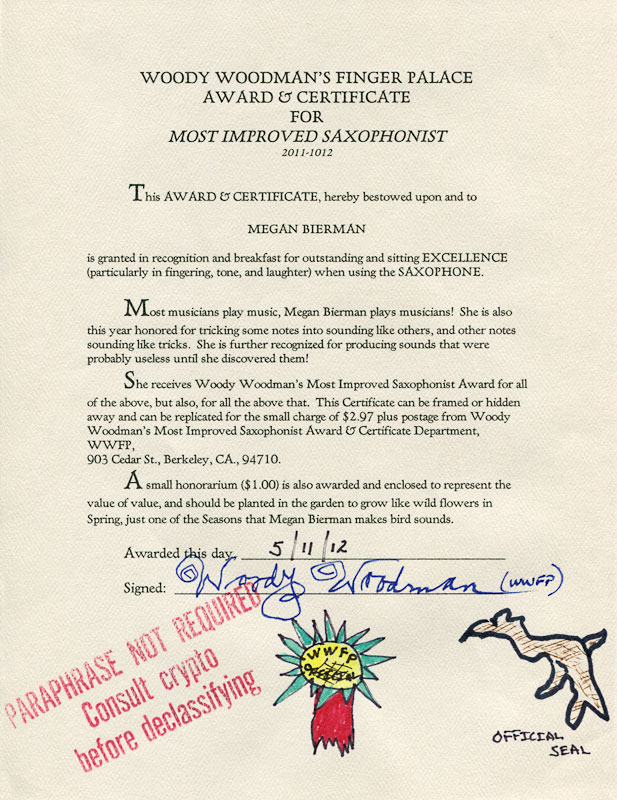 WOODY WOODMAN'S FINGER PALACE
AWARD & CERTIFICATE
FOR
MOST IMPROVED SAXOPHONIST
2011-1012
This AWARD & CERTIFICATE, hereby bestowed upon and to
MEGAN BIERMAN
is granted in recognition and breakfast for outstanding and sitting EXCELLENCE
(particularly in fingering, tone, and laughter) when using the SAXOPHONE.
Most musicians play music, Megan Bierman plays musicians! She is also
this year honored for tricking some notes into sounding like others, and other notes
sounding like tricks. She is further recognized for producing sounds that were
probably useless until she discovered them!
She receives Woody Woodman's Most Improved Saxophonist Award for all
of the above, but also, for all the above that. This Certificate can be framed or hidden
away and can be replicated for the small charge of $2.97 plus postage from Woody
Woodman's Most Improved Saxophonist Award & Certificate Department,
WWFP,
903 Cedar St., Berkeley, CA., 94710.
A small honorarium ($1.00) is also awarded and enclosed to represent the
value of value, and should be planted in the garden to grow like wild flowers in
Spring, just one of the Seasons that Megan Bierman makes bird sounds.
Awarded this day 5/11/12
Signed: Woody Woodman (WWFP)
PARAPHRASE NOT REQUIRED
Consult crypto
before declassifying
WWFP
OFFICIAL
OFFICIAL
SEAL